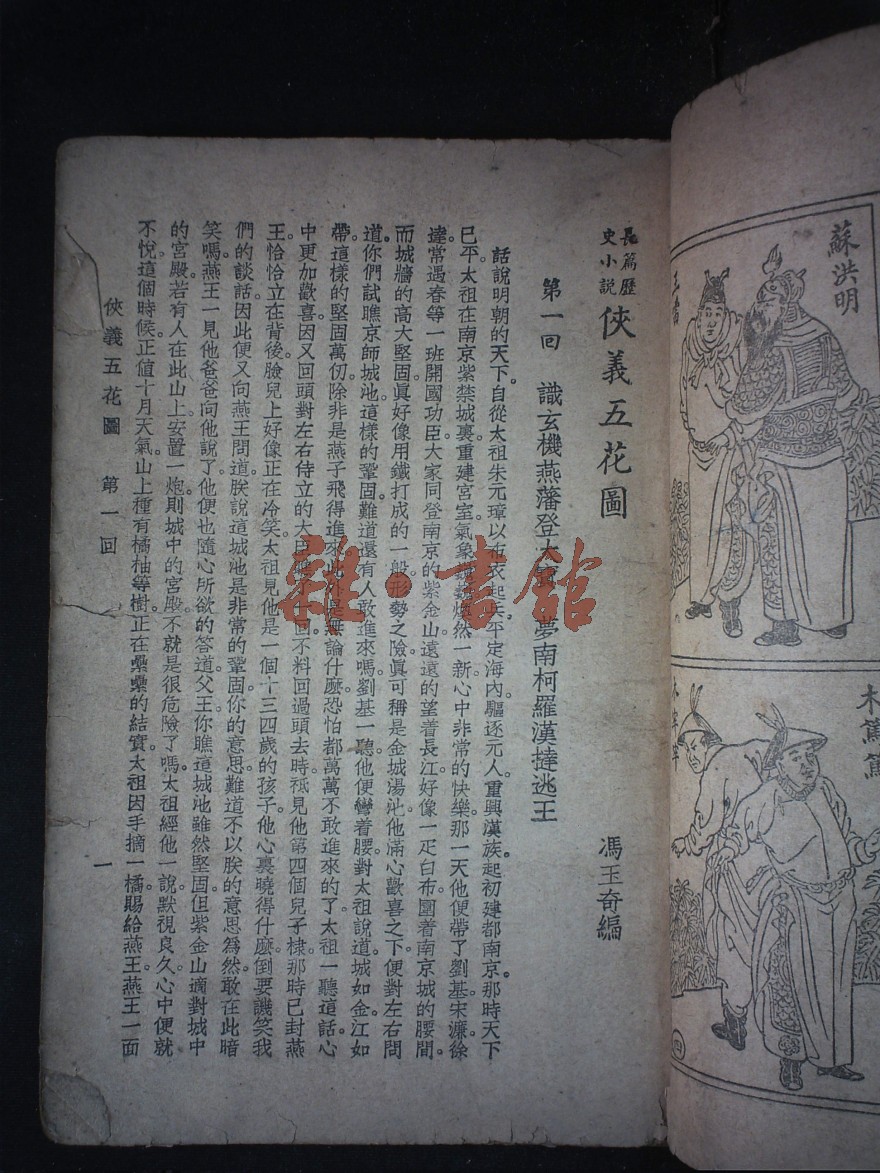 蘇洪明
木篤篤
四
長篇歷
史小說
俠義五花圖
馮玉奇編
第一回 識玄機燕藩登大寶 夢南柯羅漢撻逃王
話說明朝的天下。自從太祖朱元璋以布衣起兵平定海內。驅逐元人。重興漢族。起初建都南京。那時天下
已平。太祖在南京紫禁城裏重建宮室。氣象巍巍煥然一新。心中非常的快樂。那一天他便帶了劉基宋濂徐
達常遇春等一班開國功臣。大家同登南京的紫金山。遠遠的望着長江。好像一疋白布。圍着南京城的腰間。
而城牆的高大堅固。眞好像用鐵打成的一般。形勢之險。眞可稱是金城湯池。他滿心歡喜之下。便對左右問
道。你們試瞧京師城池。這樣的鞏固。難道還有人敢進來嗎。劉基一聽。他便彎着腰對太祖說道。城如金。江如
帶。這樣的堅固萬仞。除非是燕子飛得進來。此外是無論什麼。恐怕都萬萬不敢進來的了。太祖一聽這話。心
中更加歡喜。因又回頭對左右侍立的大臣 一回。不料回過頭去時。祇見他第四個兒子棣。那時已封燕
王。恰恰立在背後。臉兒上好像正在冷笑。太祖見他是一個十三四歲的孩子。他心裏曉得什麼。倒要譏笑我
們的談話。因此便又向燕王問道。朕說這城池是非常的鞏固。你的意思。難道不以朕的意思爲然。敢在此暗
笑嗎。燕王一見他爸爸向他說了。他便也隨心所欲的答道。父王。你瞧這城池雖然堅固。但紫金山適對城中
的宮殿。若有人在此山上安置一炮。則城中的宮殿。不就是很危險了嗎。太祖經他一說。默視良久。心中便就
不悅。這個時候。正值十月天氣。山上種有橘柚等樹。正在纍纍的結實。太祖因手摘一橘。賜給燕王。燕王一面
俠義五花圖 第一回 一
雜·書館